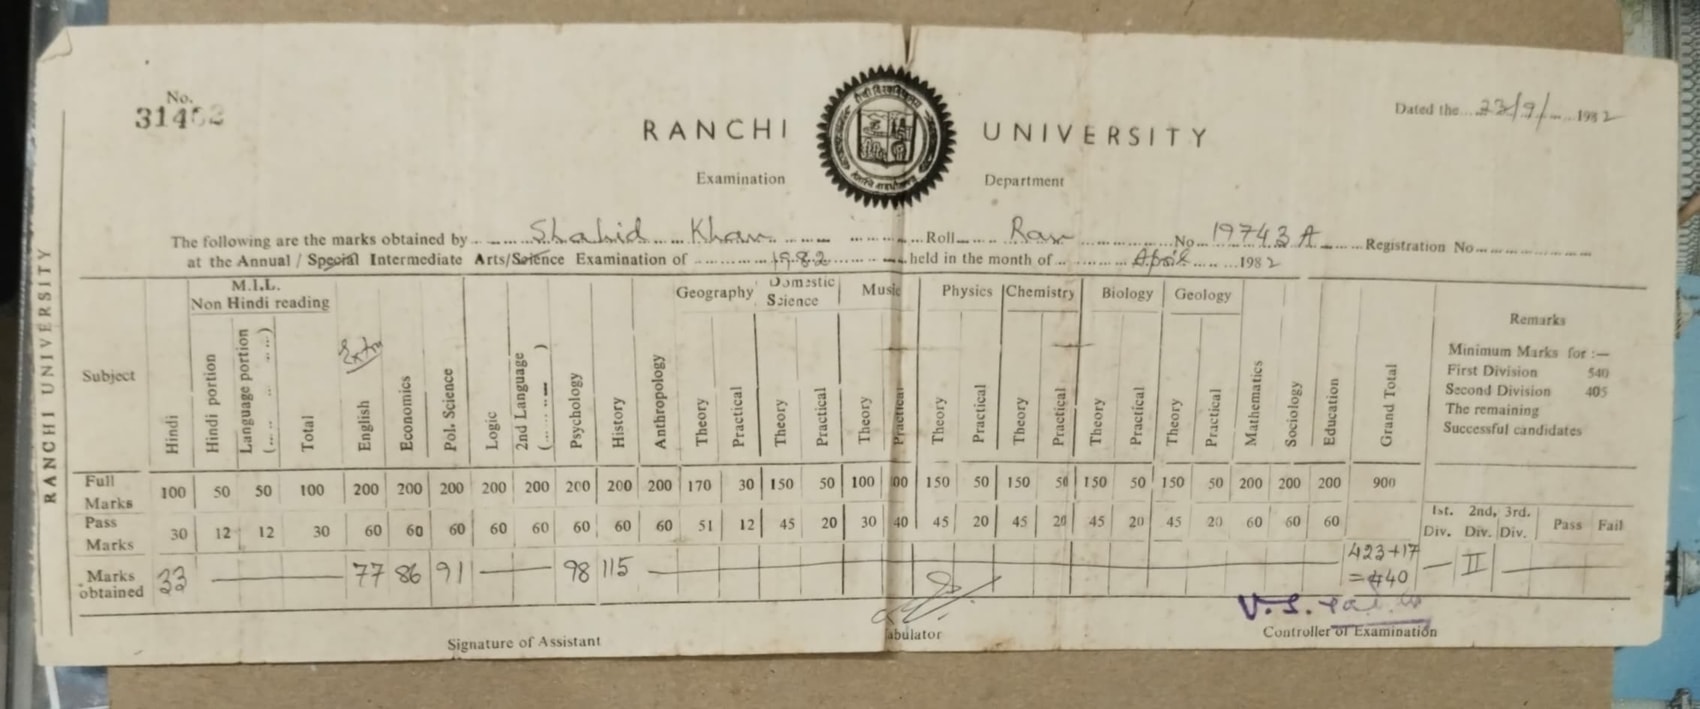 No.
314
Dated the 23/9/ 1982
RANCHI UNIVERSITY
Examination Department
The following are the marks obtained by Shahid Khan Roll Ran No 19743 A Registration No
at the Annual / Special Intermediate Arts/Science Examination of 1982 held in the month of April 1982
RANCHI UNIVERSITY
M.I.L.
Non Hindi reading
Geography Domestic Science Music Physics Chemistry Biology Geology
Subject Hindi Hindi portion Language portion Total Extra English Economics Pol. Science Logic 2nd Language Psychology History Anthropology Theory Practical Theory Practical Theory Practical Theory Practical Theory Practical Theory Practical Theory Practical Mathematics Sociology Education Grand Total
Remarks
Minimum Marks for :—
First Division 540
Second Division 405
The remaining
Successful candidates
Full Marks 100 50 50 100 200 200 200 200 200 200 200 200 170 30 150 50 100 00 150 50 150 50 150 50 150 50 200 200 200 900
Pass Marks 30 12 12 30 60 60 60 60 60 60 60 60 51 12 45 20 30 40 45 20 45 20 45 20 45 20 60 60 60
1st. 2nd, 3rd.
Div. Div. Div. Pass Fail
Marks obtained 33 77 86 91 98 115 423+17 =440 II
Signature of Assistant
abulator
V.S.
Controller of Examination